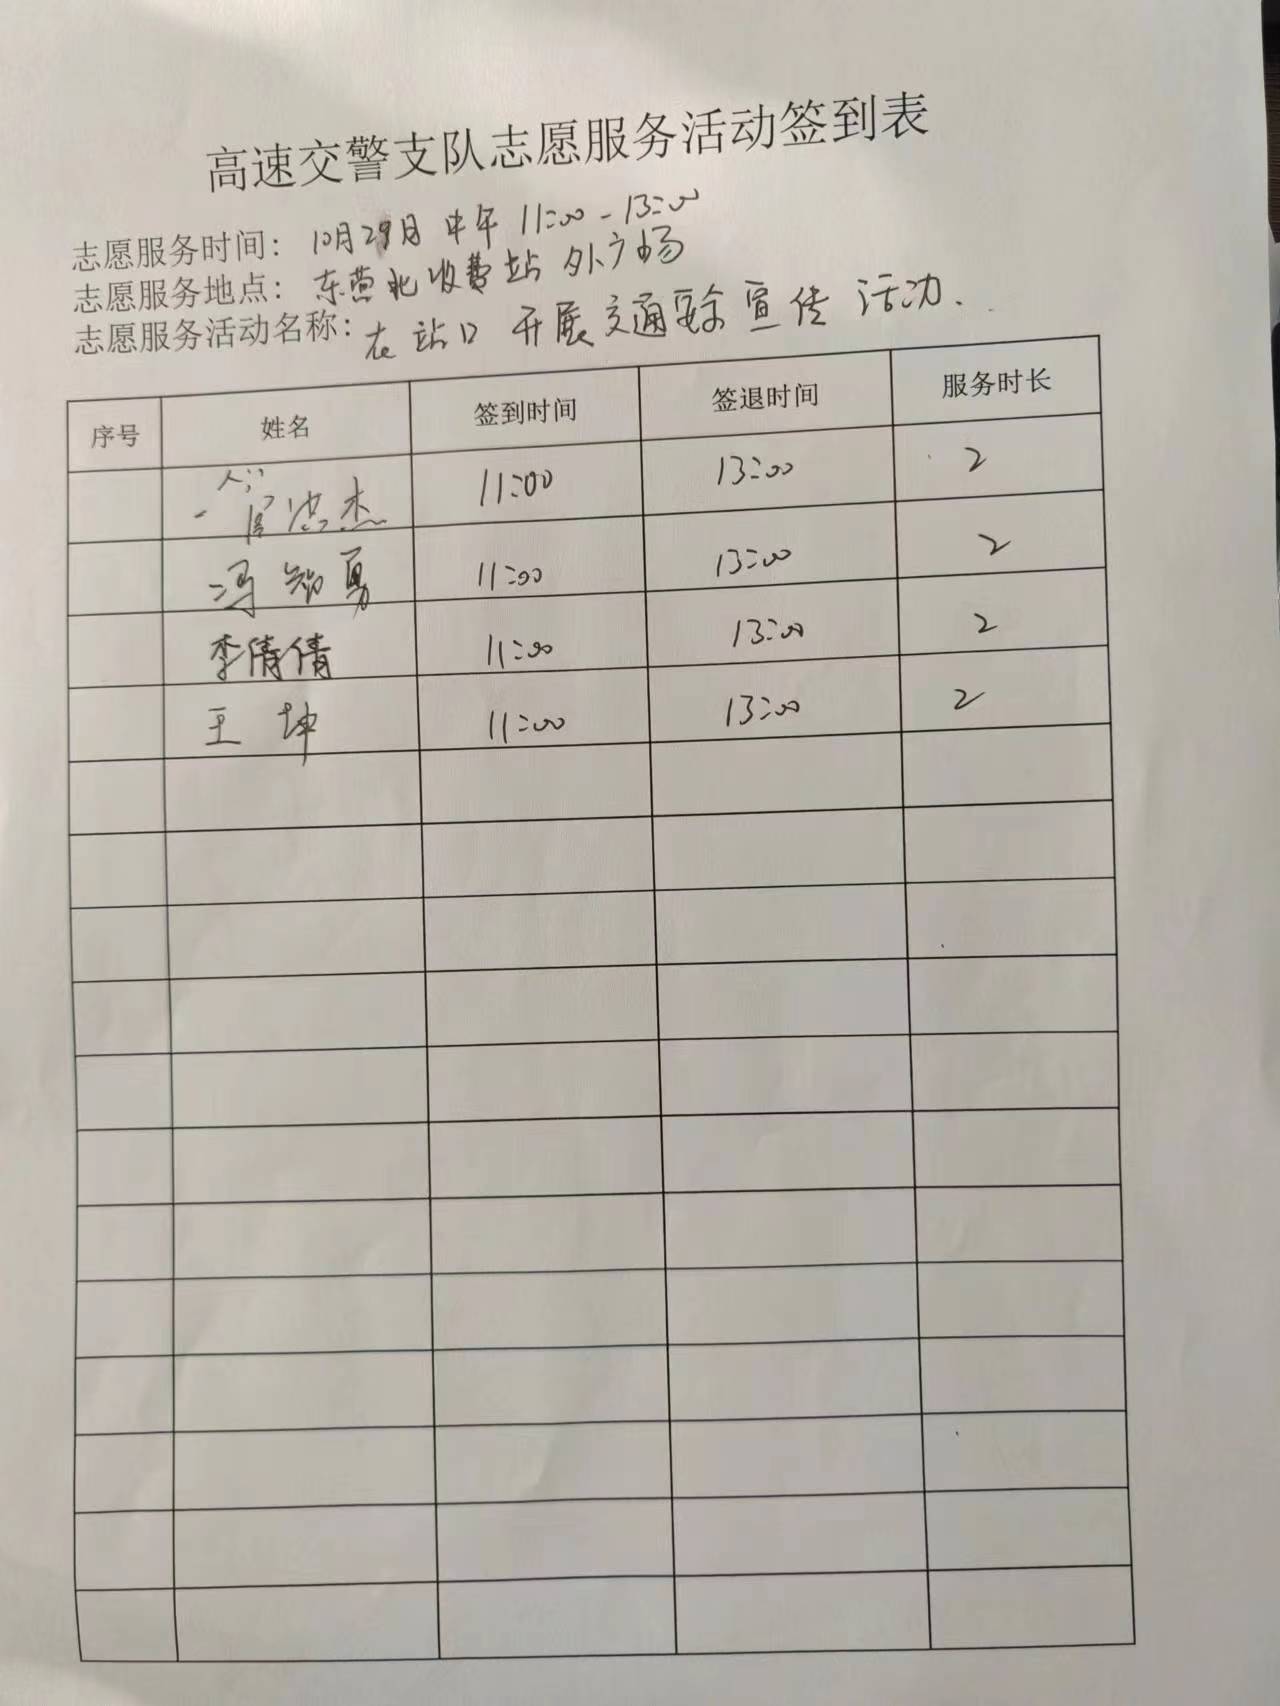 高速交警支队志愿服务活动签到表
志愿服务时间：10月29日 中午 11:00-13:00
志愿服务地点：东营北收费站 外广场
志愿服务活动名称：在站口 开展交通安全宣传 活动.
序号 姓名 签到时间 签退时间 服务时长
杰 11:00 13:00 2
冯智勇 11:00 13:00 2
李倩倩 11:00 13:00 2
王坤 11:00 13:00 2